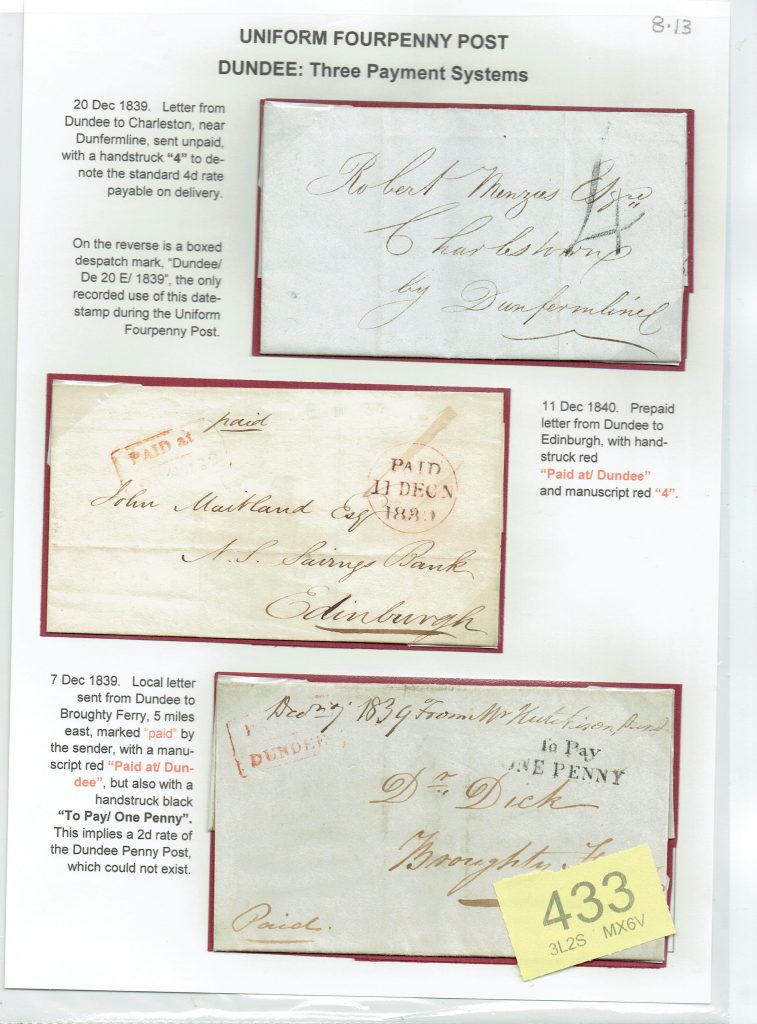 8.13
UNIFORM FOURPENNY POST
DUNDEE: Three Payment Systems
20 Dec 1839. Letter from
Dundee to Charleston, near
Dunfermline, sent unpaid,
with a handstruck “4” to de-
note the standard 4d rate
payable on delivery.
On the reverse is a boxed
despatch mark, “Dundee/
De 20 E/ 1839”, the only
recorded use of this date-
stamp during the Uniform
Fourpenny Post.
Robert Menzies Esqre
4
Charlestown
by Dunfermline
paid
PAID at
PAID
11 DEC N
John Maitland Esq
N. S. Savings Bank
Edinburgh
11 Dec 1840. Prepaid
letter from Dundee to
Edinburgh, with hand-
struck red
“Paid at/ Dundee”
and manuscript red “4”.
7 Dec 1839. Local letter
sent from Dundee to
Broughty Ferry, 5 miles
east, marked “paid” by
the sender, with a manu-
script red “Paid at/ Dun-
dee”, but also with a
handstruck black
“To Pay/ One Penny”.
This implies a 2d rate of
the Dundee Penny Post,
which could not exist.
1839 From Mr Hutchison
DUNDEE
To Pay
ONE PENNY
Dr. Dick
Broughty
Paid.
433
3L2S MX6V